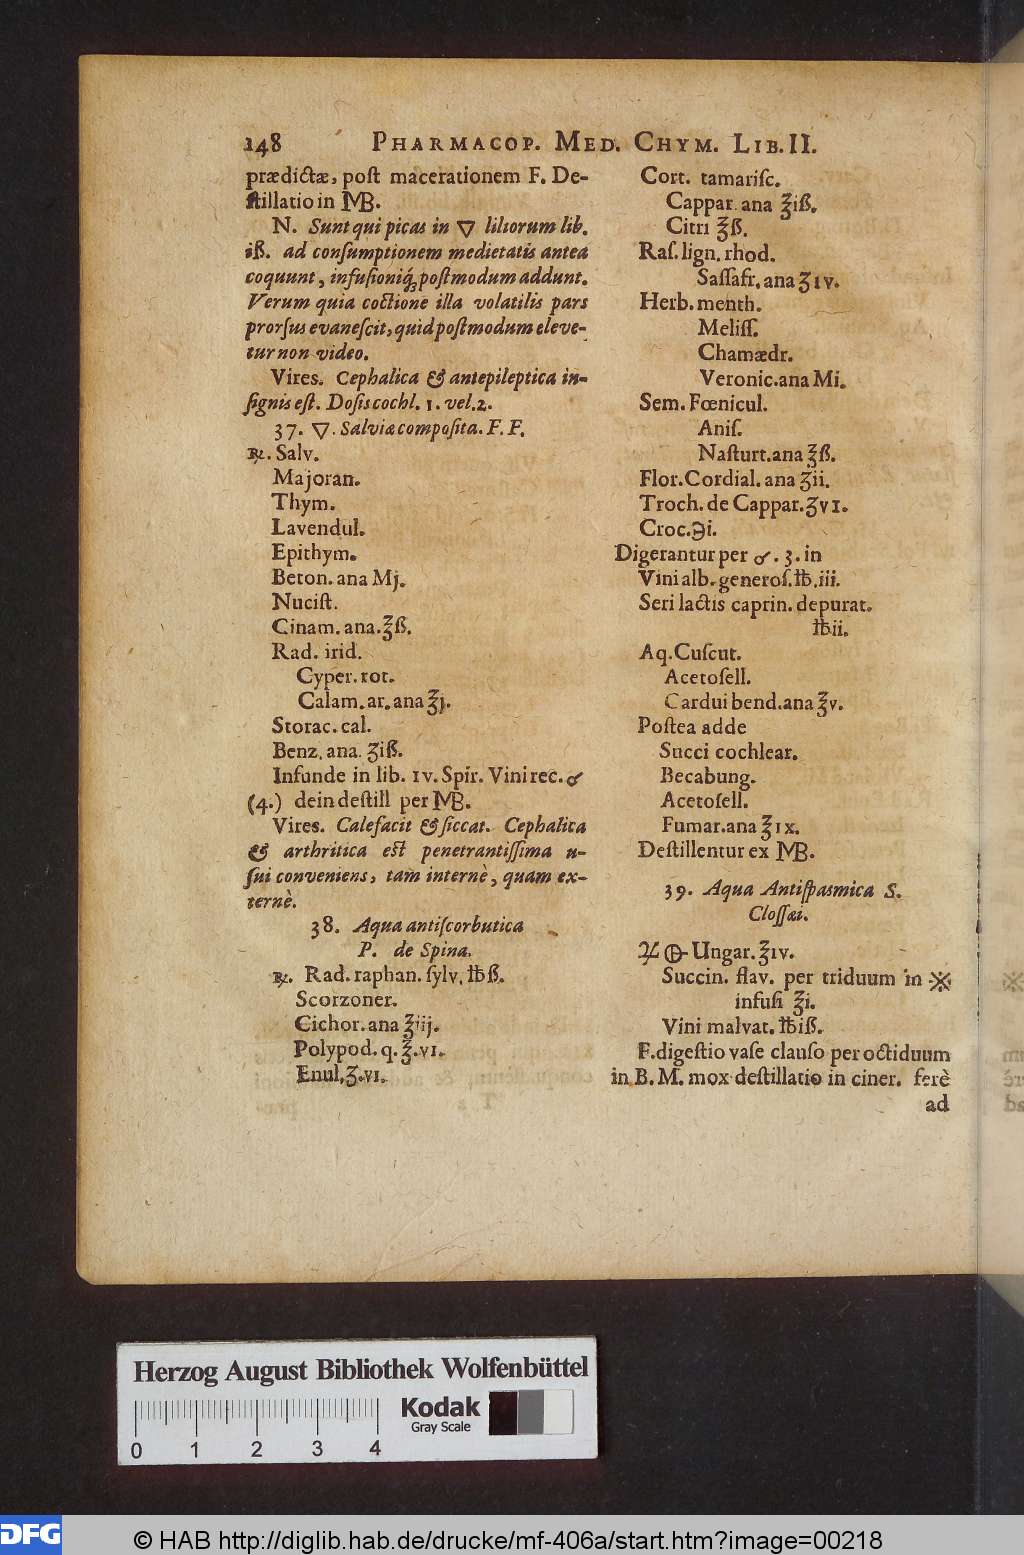 148 PHARMACOP. MED. CHYM. LIB. II.
prædictæ, poſt macerationem F. De-
ſtillatio in MB.
N. Sunt qui picas in 🜄 liliorum lib.
iß. ad conſumptionem medietatis antea
coquunt, infuſioniq́ꝫ poſtmodum addunt.
Verum quia coctione illa volatilis pars
prorſus evaneſcit, quid poſtmodum eleve-
tur non video.
Vires. Cephalica & antepileptica in-
ſignis eſt. Doſis cochl. 1. vel. 2.
37. 🜄. Salviæ compoſita. F. F.
℞. Salv.
Majoran.
Thym.
Lavendul.
Epithym.
Beton. ana Mj.
Nuciſt.
Cinam. ana. ℥ß.
Rad. irid.
Cyper. rot.
Calam. ar. ana ℥j.
Storac. cal.
Benz. ana. ʒiß.
Infunde in lib. IV. Spir. Vini rec. ♂
(4.) dein deſtill per MB.
Vires. Calefacit & ſiccat. Cephalica
& arthritica eſt penetrantiſſima u-
ſui conveniens, tam internè, quam ex-
ternè.
38. Aqua antiſcorbutica
P. de Spina.
℞. Rad. raphan. ſylv. ℔ß.
Scorzoner.
Cichor. ana ℥iij.
Polypod. q. ℥.VI.
Enul. ʒ.VI.
Cort. tamariſc.
Cappar. ana ℥iß.
Citri ℥ß.
Raſ. lign. rhod.
Saſſafr. ana ʒIV.
Herb. menth.
Meliſſ.
Chamædr.
Veronic. ana Mi.
Sem. Fœnicul.
Aniſ.
Naſturt. ana ℥ß.
Flor. Cordial. ana ʒii.
Troch. de Cappar. ʒVI.
Croc. ℈i.
Digerantur per ♂. 3. in
Vini alb. generoſ. ℔. iii.
Seri lactis caprin. depurat.
℔ii.
Aq. Cuſcut.
Acetoſell.
Cardui bend. ana ℥v.
Poſtea adde
Succi cochlear.
Becabung.
Acetoſell.
Fumar. ana ℥IX.
Deſtillentur ex MB.
39. Aqua Antiſpasmica S.
Cloſſæi.
♃ 🜕 Ungar. ℥IV.
Succin. flav. per triduum in ※
infuſi ℥i.
Vini malvat. ℔iß.
F. digeſtio vaſe clauſo per octiduum
in B. M. mox deſtillatio in ciner. ferè
ad
Herzog August Bibliothek Wolfenbüttel
Kodak
Gray Scale
0 1 2 3 4
DFG
© HAB http://diglib.hab.de/drucke/mf-406a/start.htm?image=00218